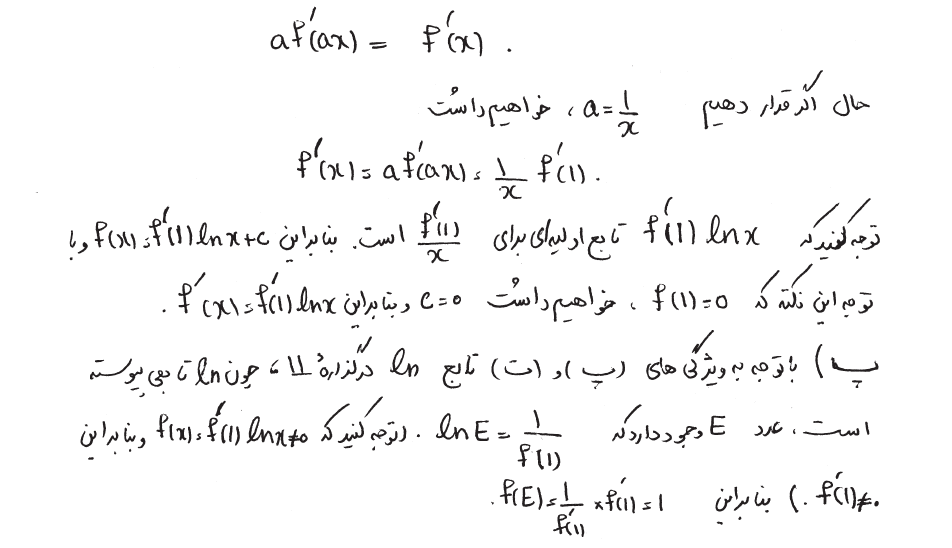 af'(ax) = f'(x) .
حال اگر قرار دهیم a = 1/x ، خواهیم داشت
f'(x) = af'(ax) = 1/x f'(1) .
توجه کنید که f'(1) ln x تابع اولیه‌ای برای f'(1)/x است. بنابراین f(x) = f'(1) ln x + c و با
توجه این نکته که f(1) = 0 ، خواهیم داشت c = 0 و بنابراین f'(x) = f'(1) ln x .
پ) با توجه به ویژگی های (پ) و (ت) تابع ln در گزارهٔ 11 ، چون ln تابعی پیوسته
است ، عدد E وجود دارد که ln E = 1/f'(1) . (توجه کنید که f(x) = f'(1) ln x ≠ 0 و بنابراین
f'(1) ≠ 0 .) بنابراین f(E) = 1/f'(1) × f'(1) = 1 .